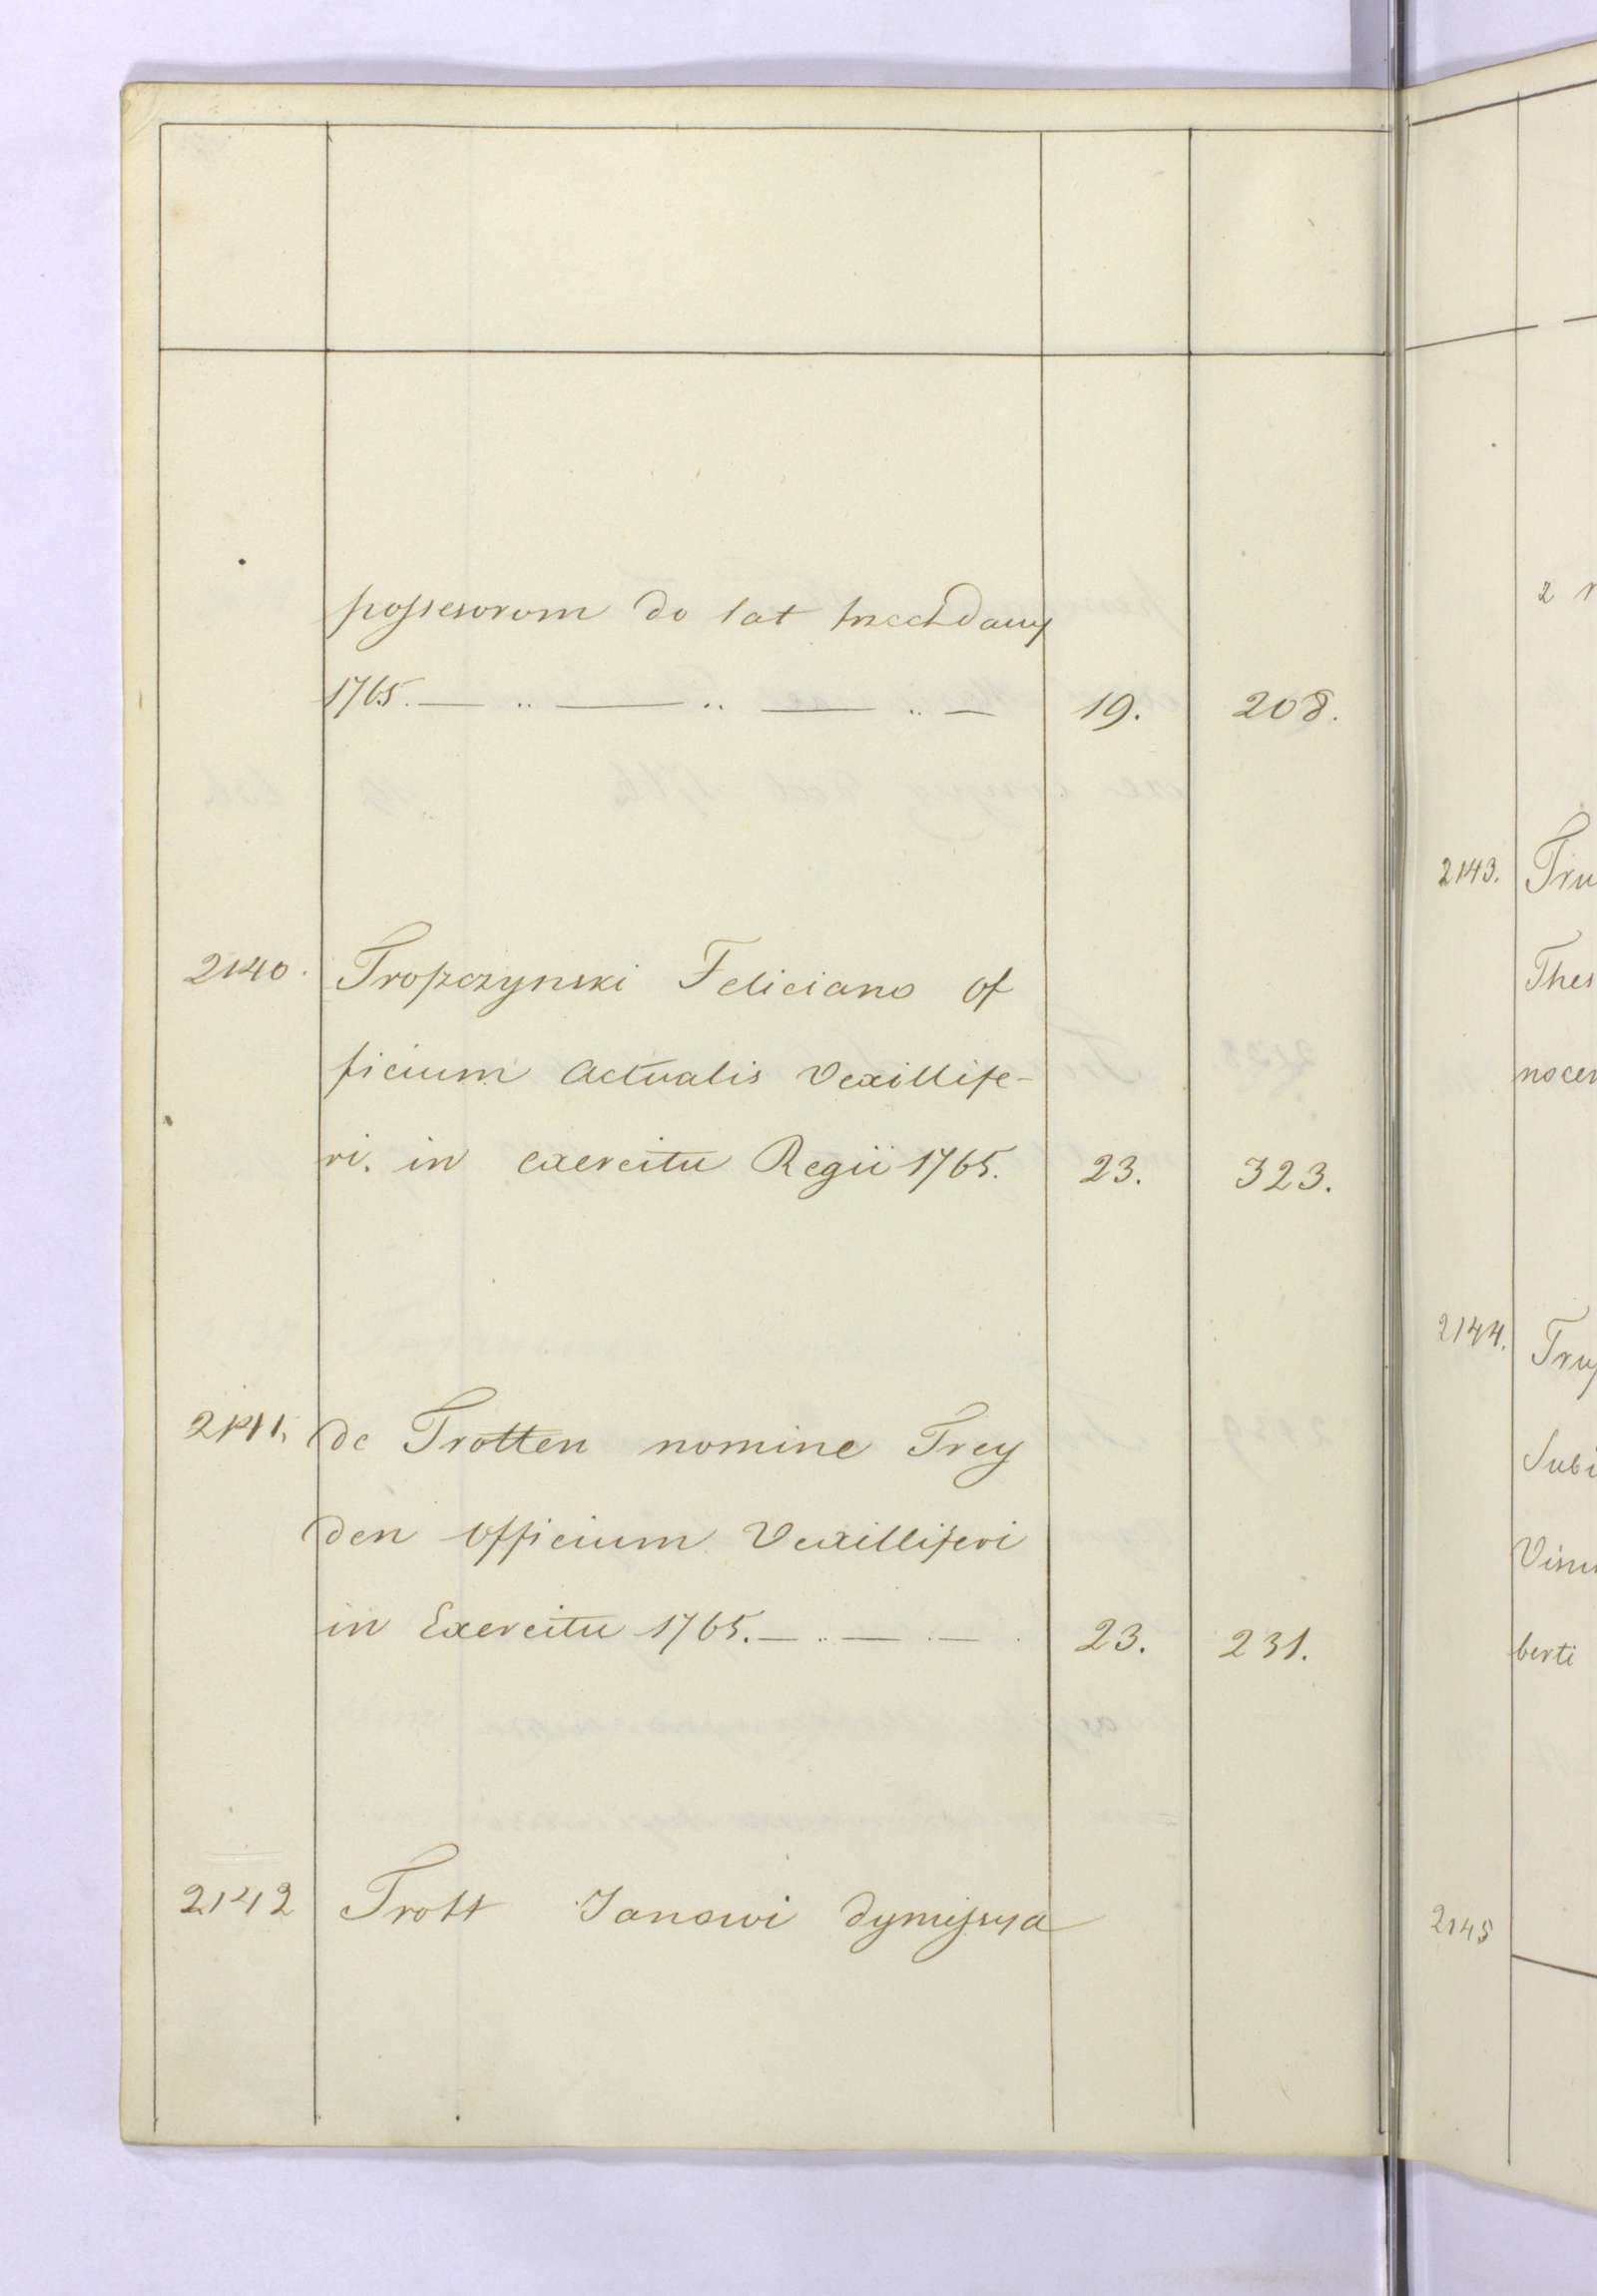 possesorom do lat trzech dany
1765. — .. — .. — .. — 19. 208.
2140. Troszczynski Feliciano of
ficium Actualis Vexillife-
ri. in exercitu Regii 1765. 23. 323.
2141. de Trotten nomine Trey
den officium Vexilliferi
in Exercitu 1765. — .. — . — . 23. 231.
2142 Trott Janowi dymissya
2 
2143. Tru
Thes
nocen
2144. Trus
Subi
berti
2145